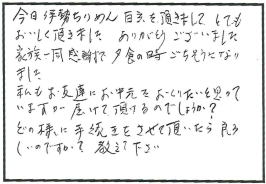 今日伊勢ちりめん 百支を頂きまして とても
おいしく頂きました ありがとうございました
家族一同感謝で 夕食の時ごちそうになり
ました
私もお友達にお中元をおくりたいと思って
いますが 届けて頂けるのでしょうか?
どの様に手続きをさせて頂いたら良ろ
しいのですか? 教えて下さい